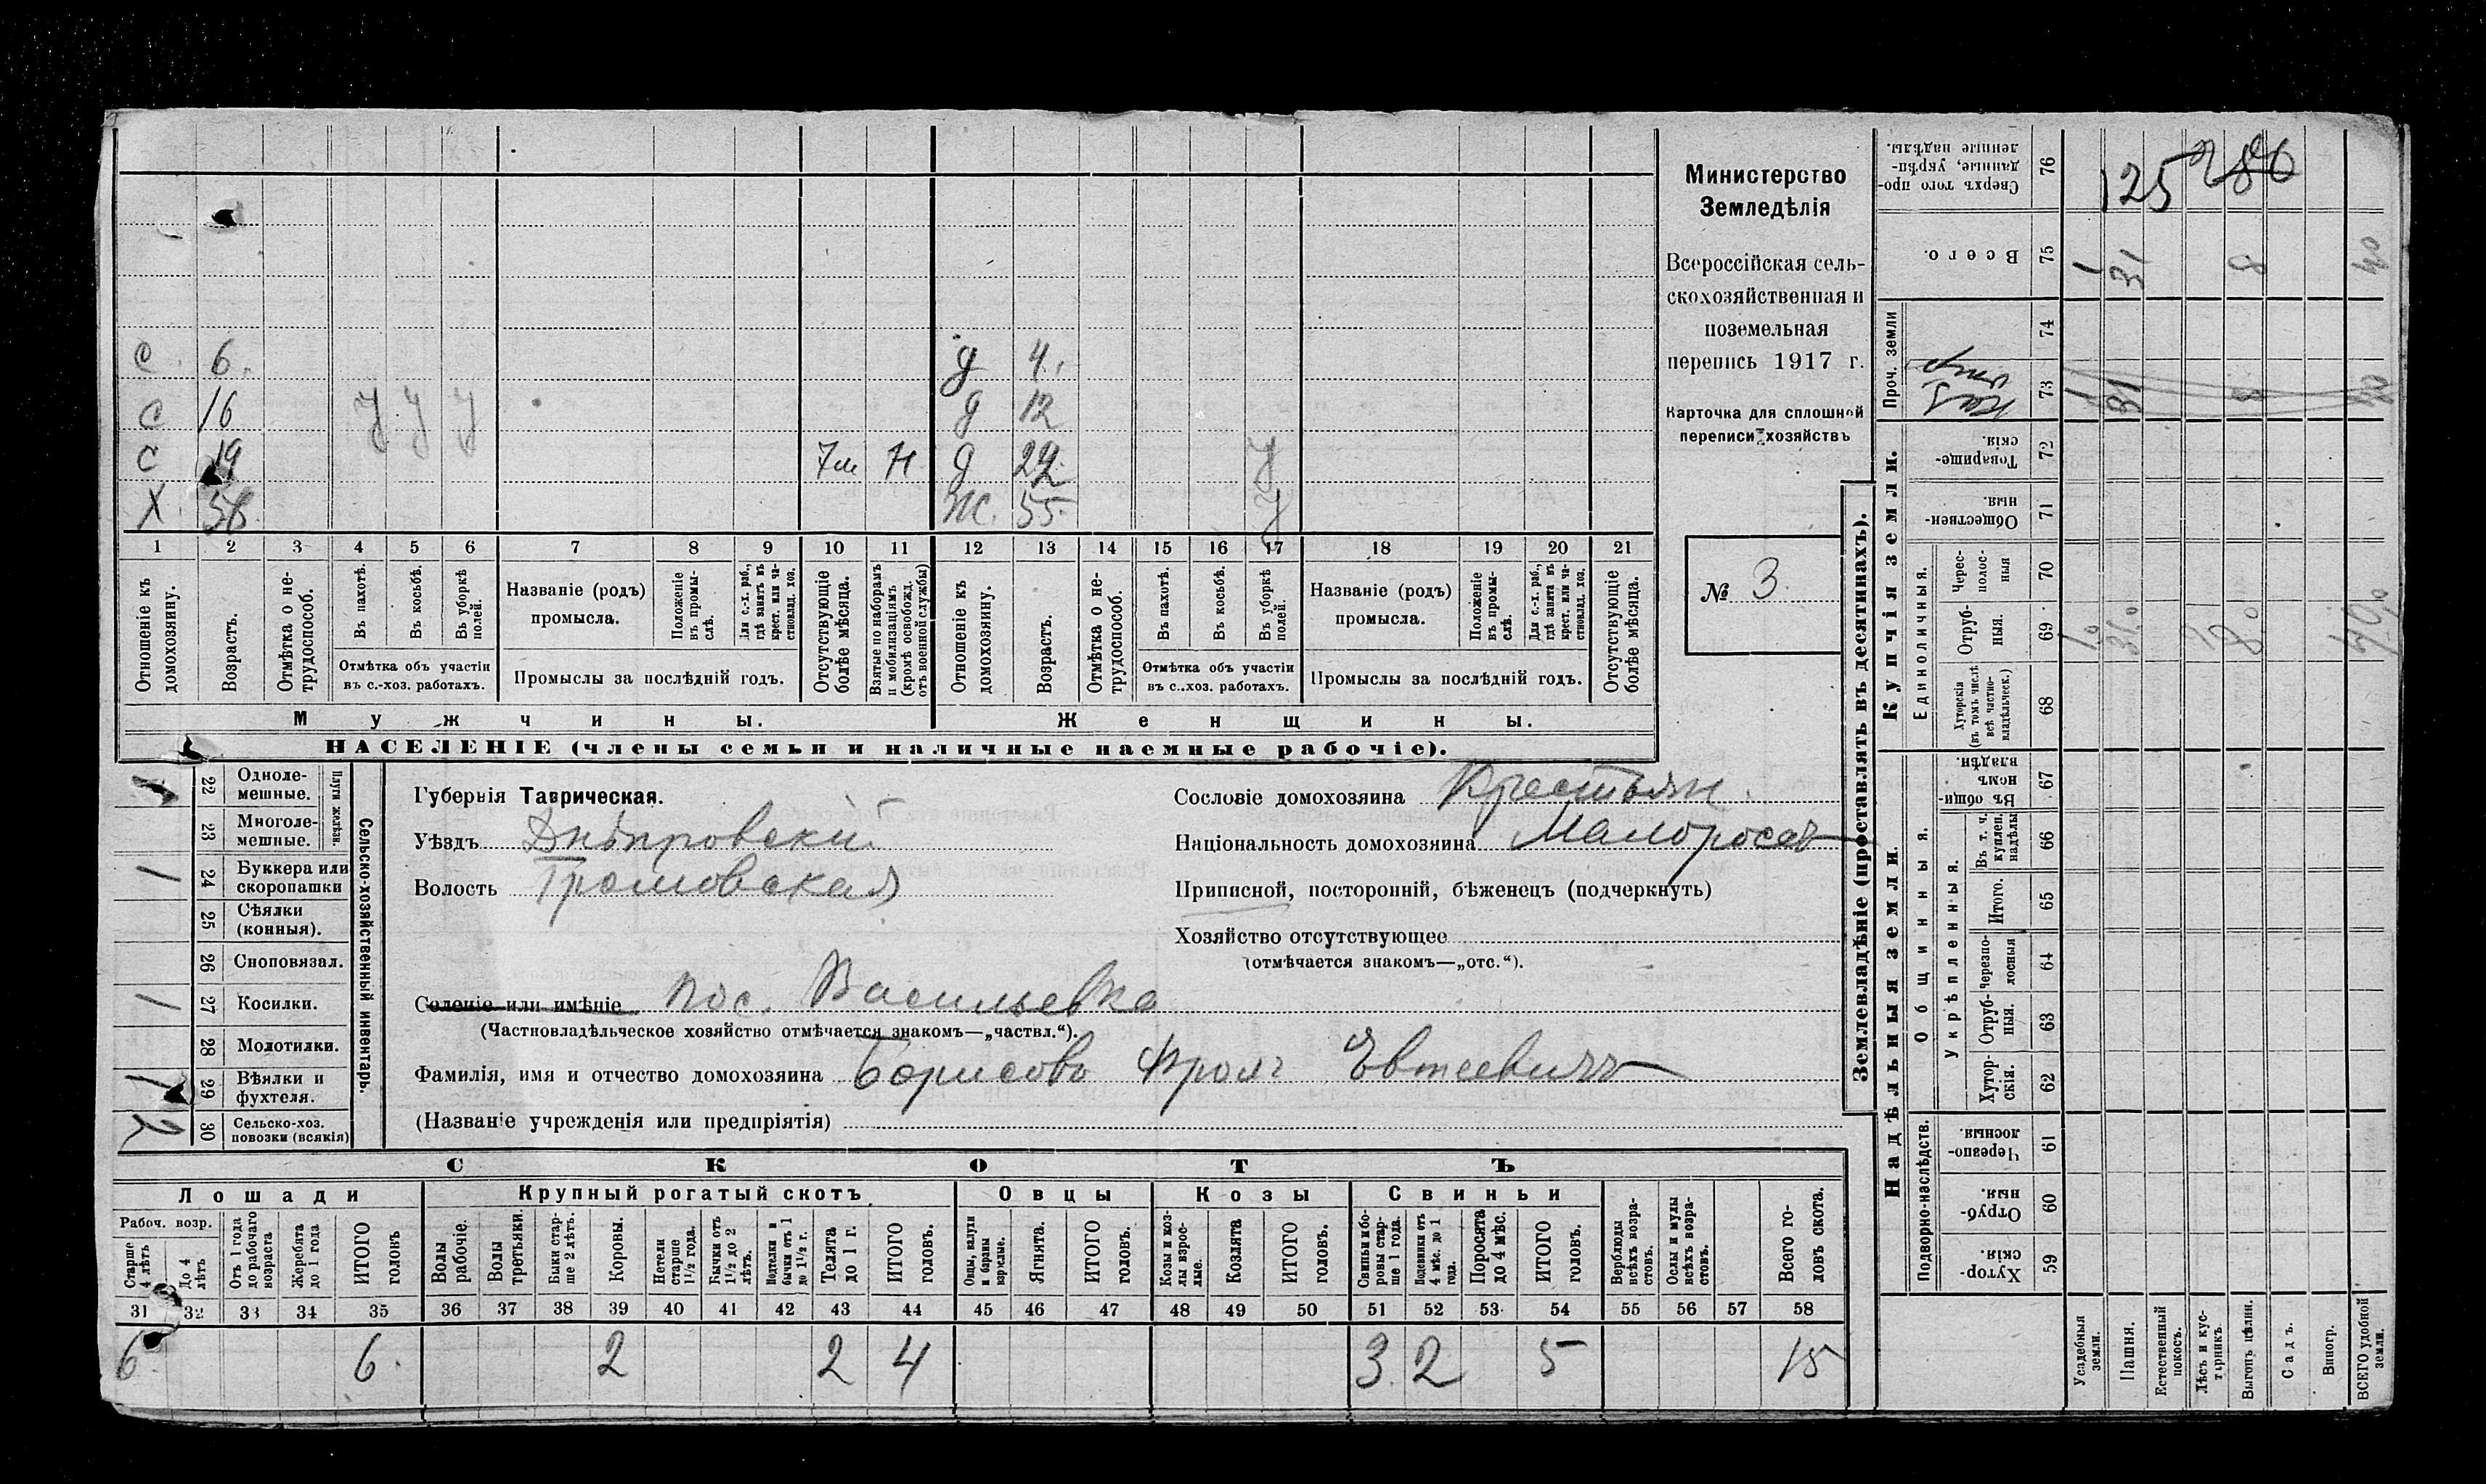 С. 6. д 4.
С 16 У У У д 12
С 19 7м Н д 22 У
Х. 58 Ж. 55. У
1 2 3 4 5 6 7 8 9 10 11 12 13 14 15 16 17 18 19 20 21
Отношеніе къ домохозяину.
Возрастъ.
Отмѣтка о нетрудоспособ.
Въ пахотѣ.
Въ косьбѣ.
Въ уборкѣ полей.
Отмѣтка объ участіи
въ с.-хоз. работахъ.
Названіе (родъ)
промысла.
Положеніе въ промыслѣ.
Для с.-х. раб., гдѣ занятъ въ крест. или частновлад. хоз.
Промыслы за послѣдній годъ.
Отсутствующіе болѣе мѣсяца.
Взятые по наборамъ и мобилизаціямъ (кромѣ освобожд. отъ военной службы)
Отношеніе къ домохозяину.
Возрастъ.
Отмѣтка о нетрудоспособ.
Въ пахотѣ.
Въ косьбѣ.
Въ уборкѣ полей.
Отмѣтка объ участіи
въ с.-хоз. работахъ.
Названіе (родъ)
промысла.
Положеніе въ промыслѣ.
Для с.-х. раб., гдѣ занята въ крест. или частновлад. хоз.
Промыслы за послѣдній годъ.
Отсутствующіе болѣе мѣсяца.
Мужчины. Женщины.
НАСЕЛЕНІЕ (члены семьи и наличные наемные рабочіе).
Министерство
Земледѣлія
Всероссійская сель-
скохозяйственная и
поземельная
перепись 1917 г.
Карточка для сплошной
переписи хозяйствъ
№ 3.
1 22 Одноле-
мешные.
Плуги желѣзн.
23 Многоле-
мешные.
1 24 Буккера или
скоропашки
25 Сѣялки
(конныя).
26 Сноповязал.
1 27 Косилки.
28 Молотилки.
1 29 Вѣялки и
фухтеля.
2 30 Сельско-хоз.
повозки (всякія)
Сельско-хозяйственный инвентарь.
Губернія Таврическая.
Уѣздъ Днѣпровскій
Волость Громовская
Селеніе или имѣніе пос. Васильевка
(Частновладѣльческое хозяйство отмѣчается знакомъ—„частвл.“).
Фамилія, имя и отчество домохозяина Борисовъ Фролъ Евтеевичъ
(Названіе учрежденія или предпріятія)
Сословіе домохозяина Крестьян.
Національность домохозяина Малоросъ
Приписной, посторонній, бѣженецъ (подчеркнуть)
Хозяйство отсутствующее
(отмѣчается знакомъ—„отс.“).
СКОТЪ
Лошади Крупный рогатый скотъ Овцы Козы Свиньи
Рабоч. возр.
Старше 4 лѣтъ
До 4 лѣтъ
Отъ 1 года до рабочаго возраста
Жеребята до 1 года
ИТОГО головъ
Волы рабочіе.
Волы третьяки.
Быки старше 2 лѣтъ.
Коровы.
Нетели старше 1½ года.
Бычки отъ 1½ до 2 лѣтъ.
Подтелки и бычки отъ 1 до 1½ г.
Телята до 1 г.
ИТОГО головъ.
Овцы, валухи и бараны взрослые.
Ягнята.
ИТОГО головъ.
Козы и козлы взрослые.
Козлята
ИТОГО головъ.
Свиньи и боровы старше 1 года.
Подсвинки отъ 4 мѣс. до 1 года.
Поросята до 4 мѣс.
ИТОГО головъ.
Верблюды всѣхъ возрастовъ.
Ослы и мулы всѣхъ возрастовъ.
Всего головъ скота.
31 32 33 34 35 36 37 38 39 40 41 42 43 44 45 46 47 48 49 50 51 52 53 54 55 56 57 58
6 6. 2 2 4 3 2 5 15
Землевладѣніе (проставлять въ десятинахъ).
Надѣльныя земли. Купчія земли. Проч. земли
Подворно-наслѣдств.
Общинныя.
Укрѣпленныя.
Единоличныя.
Хуторскія. 59
Отрубныя. 60
Черезполосныя. 61
Хуторскія. 62
Отрубныя. 63
Черезполосныя 64
Итого. 65
Въ т. ч. куплен. надѣлы 66
Въ общинномъ владѣн. 67
Хуторскія (въ томъ числѣ всѣ частновладѣльческ.) 68
Отрубныя. 69 31,0
Чересполосныя 70
Общественныя. 71
Товарищескія. 72
73 1 31 8 40
74
Всего. 75 1 31 8 40
Сверхъ того проданные, укрѣпленные надѣлы. 76
125
Усадебныя земли.
Пашня.
Естественный покосъ.
Лѣсъ и кустарникъ.
Выгонъ цѣлин.
Садъ.
Виногр.
ВСЕГО удобной земли.